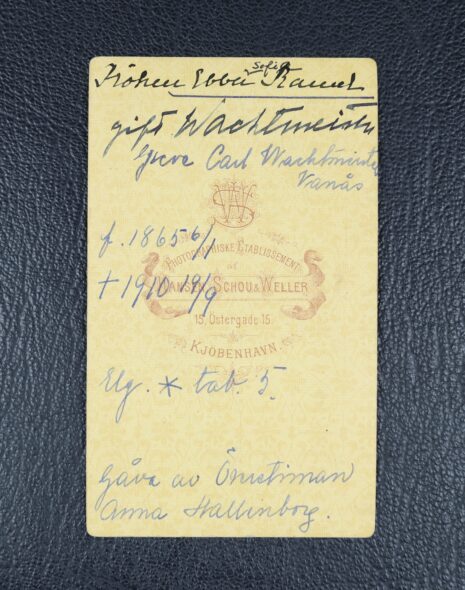 Fröken Ebba Sofia Ramel
gift Wachtmeister
Greve Carl Wachtmeister
Vanås
f. 1865 6/1
PHOTOGRAPHISKE ETABLISSEMENT
af
† 1910 19/9
HANSEN, SCHOU & WELLER
15, Östergade 15.
KJÖBENHAVN.
Elg. * tab. 5.
Gåva av
Anna Hallenborg.